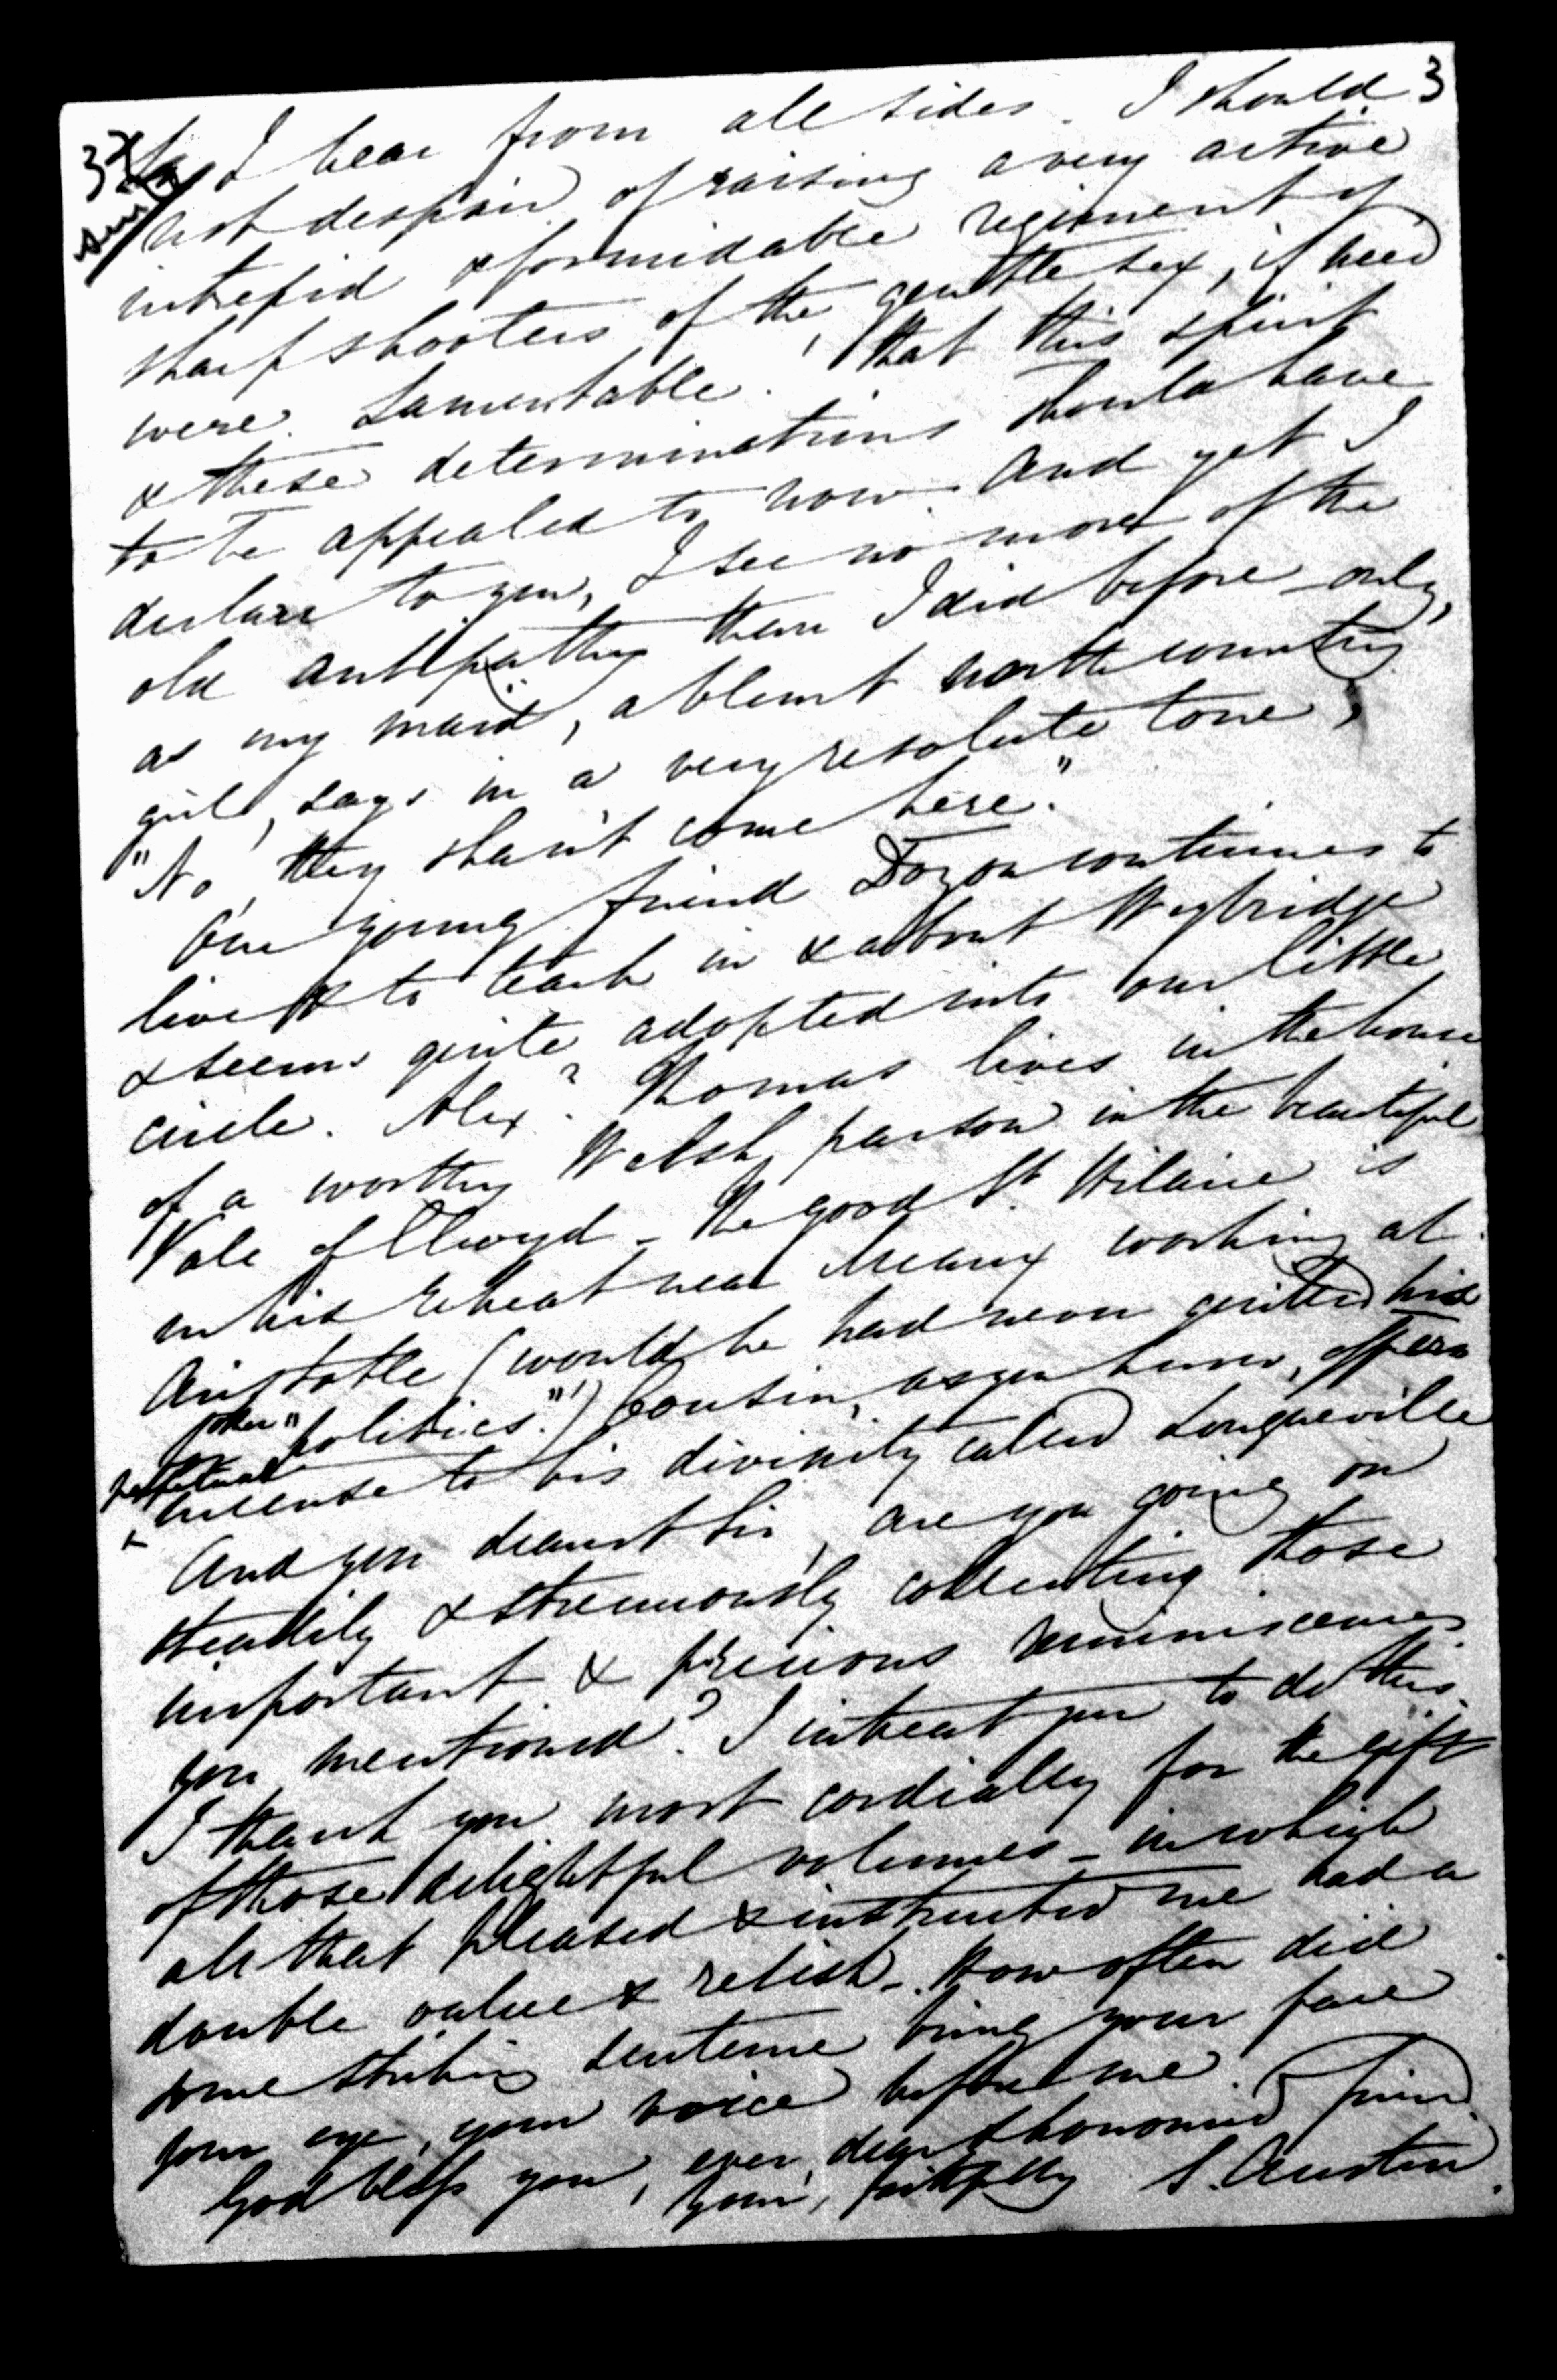 3
32
So I hear from all sides. I should
not despair of raising a very active
intrepid & formidable regiment of
sharpshooters of the gentle sex, if need
were. Lamentable! that this spirit
& these determinations should have
to be appealed to now. And yet I
declare to you, I see no more of the
old antipathy than I did before – only,
as my maid, a blunt north country
girl, says in a very resolute tone,
"No, they shan't come here."
Our young friend Dozon continues to
live & to teach in & about Weybridge
& seems quite adopted into our little
circle. Alexr Thomas lives in the house
of a worthy Welsh parson in the beautiful
Vale of Clwyd – The good St. Hilaire is
in his retreat near Meaux working at
Aristotle (would he had never quitted his
for "politics"!) Cousin, as you know, offers
perpetual
incense to his divinity called Longueville
And you dearest Sir, are you going on
steadily & strenuously collecting those
important & precious reminiscences
you mentioned? I intreat you to do this.
I thank you most cordially for the gift
of those delightful volumes – in which
all that pleased & instructed me had a
double value & relish – How often did
some striking sentence bring your face
your eye, your voice before me.
God bless you, ever dear & honoured friend
Yours, faithfully S. Austin